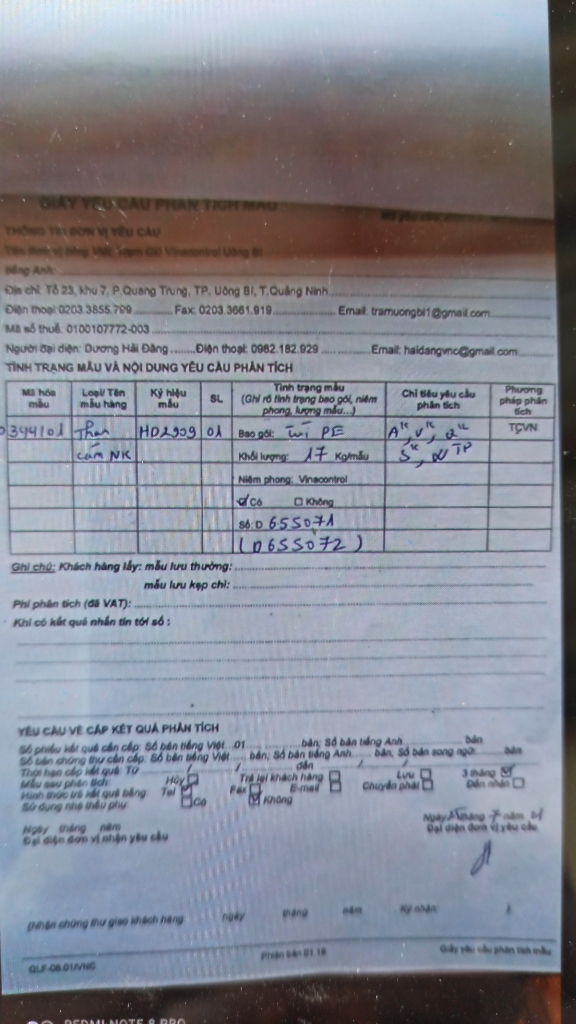 GIẤY YÊU CẦU PHÂN TÍCH MẪU
THÔNG TIN ĐƠN VỊ YÊU CẦU
Tên đơn vị tiếng Việt: Trạm GĐ Vinacontrol Uông Bí
tiếng Anh:
Địa chỉ: Tổ 23, khu 7, P.Quang Trung, TP. Uông Bí, T.Quảng Ninh
Điện thoại: 0203.3855.799 Fax: 0203.3661.919 Email: tramuongbi1@gmail.com
Mã số thuế: 0100107772-003
Người đại diện: Dương Hải Đăng Điện thoại: 0962.182.929 Email: haidangvnc@gmail.com
TÌNH TRẠNG MẪU VÀ NỘI DUNG YÊU CẦU PHÂN TÍCH
Mã hóa mẫu Loại/ Tên mẫu hàng Ký hiệu mẫu SL Tình trạng mẫu (Ghi rõ tình trạng bao gói, niêm phong, lượng mẫu...) Chỉ tiêu yêu cầu phân tích Phương pháp phân tích
0344101 Than HD2909 01 Bao gói: túi PE TCVN
cám NK Khối lượng: 17 Kg/mẫu
Niêm phong: Vinacontrol
☑ Có ☐ Không
Số: D 655071
(D655072)
Ghi chú: Khách hàng lấy: mẫu lưu thường:
mẫu lưu kẹp chì:
Phí phân tích (đã VAT):
Khi có kết quả nhắn tin tới số :
YÊU CẦU VỀ CẤP KẾT QUẢ PHÂN TÍCH
Số phiếu kết quả cần cấp: Số bản tiếng Việt 01 bản; Số bản tiếng Anh bản
Số bản chứng thư cần cấp: Số bản tiếng Việt bản; Số bản tiếng Anh bản; Số bản song ngữ: bản
Thời hạn cấp kết quả: Từ / / đến / /
Mẫu sau phân tích: Hủy ☐ Trả lại khách hàng ☐ Lưu ☐ 3 tháng ☑
Hình thức trả kết quả bằng: Tel ☑ Fax ☐ E-mail ☐ Chuyển phát ☐ Đến nhận ☐
Sử dụng nhà thầu phụ: ☐ Có ☑ Không
Ngày tháng năm
Đại diện đơn vị nhận yêu cầu
Ngày tháng 7 năm 21
Đại diện đơn vị yêu cầu
(Nhận chứng thư giao khách hàng ngày tháng năm Ký nhận: )
QLF-08.01/VNC Phiên bản 01.18 Giấy yêu cầu phân tích mẫu
REDMI NOTE 8 PRO